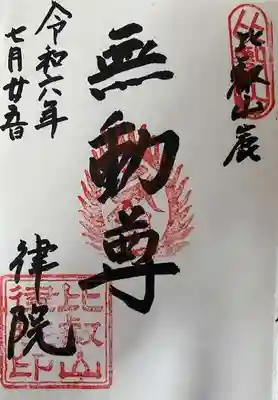 比叡山
無動尊
律院
令和六年
七月廿五日
比叡山
律院印